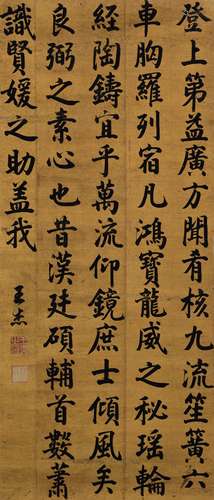 登上第益廣方聞有核九流笙簧六
車胸羅列宿凡鴻寶龍威之秘瑤輪
經陶鑄宜乎萬流仰鏡庶士傾風矣
良弼之素心也昔漢廷碩輔首數蕭
識賢媛之助益我
王杰